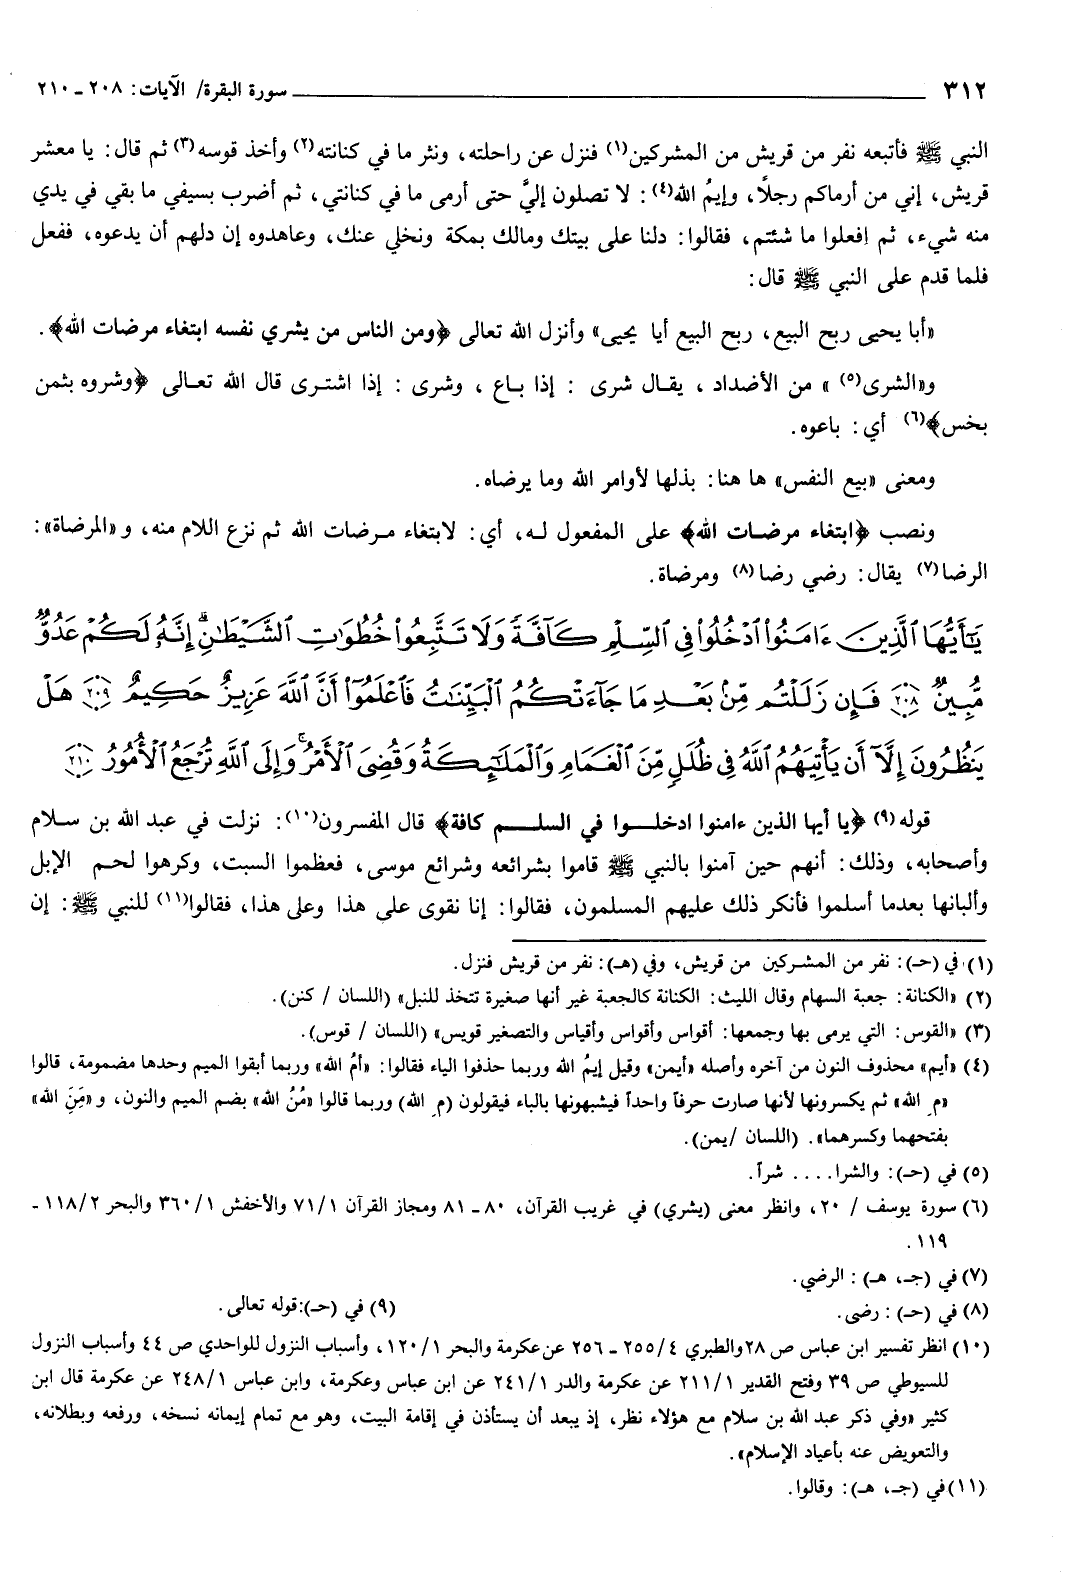 ٣١٢ سورة البقرة/ الآيات: ٢٠٨ ـ ٢١٠
النبي ﷺ فأتبعه نفر من قريش من المشركين(١) فنزل عن راحلته، ونثر ما في كنانته(٢) وأخذ قوسه(٣) ثم قال: يا معشر
قريش، إني من أرماكم رجلًا، وإيمُ الله(٤): لا تصلون إليَّ حتى أرمى ما في كنانتي، ثم أضرب بسيفي ما بقي في يدي
منه شيء، ثم افعلوا ما شئتم، فقالوا: دلنا على بيتك ومالك بمكة ونخلي عنك، وعاهدوه إن دلهم أن يدعوه، ففعل
فلما قدم على النبي ﷺ قال:
«أبا يحيى ربح البيع، ربح البيع أيا يحيى» وأنزل الله تعالى ﴿ومن الناس من يشري نفسه ابتغاء مرضات الله﴾.
و«الشرى(٥)» من الأضداد، يقال شرى: إذا باع، وشرى: إذا اشترى قال الله تعالى ﴿وشروه بثمن
بخس﴾(٦) أي: باعوه.
ومعنى «بيع النفس» ها هنا: بذلها لأوامر الله وما يرضاه.
ونصب ﴿ابتغاء مرضات الله﴾ على المفعول له، أي: لابتغاء مرضات الله ثم نزع اللام منه، و«المرضاة»:
الرضا(٧) يقال: رضي رضا(٨) ومرضاة.
يَٰٓأَيُّهَا ٱلَّذِينَ ءَامَنُوا۟ ٱدْخُلُوا۟ فِى ٱلسِّلْمِ كَآفَّةً وَلَا تَتَّبِعُوا۟ خُطُوَٰتِ ٱلشَّيْطَٰنِ ۚ إِنَّهُۥ لَكُمْ عَدُوٌّ
مُّبِينٌ ٢٠٨ فَإِن زَلَلْتُم مِّنۢ بَعْدِ مَا جَآءَتْكُمُ ٱلْبَيِّنَٰتُ فَٱعْلَمُوٓا۟ أَنَّ ٱللَّهَ عَزِيزٌ حَكِيمٌ ٢٠٩ هَلْ
يَنظُرُونَ إِلَّآ أَن يَأْتِيَهُمُ ٱللَّهُ فِى ظُلَلٍ مِّنَ ٱلْغَمَامِ وَٱلْمَلَٰٓئِكَةُ وَقُضِىَ ٱلْأَمْرُ ۚ وَإِلَى ٱللَّهِ تُرْجَعُ ٱلْأُمُورُ ٢١٠
قوله(٩) ﴿يا أيها الذين ءامنوا ادخلوا في السلم كافة﴾ قال المفسرون(١٠): نزلت في عبد الله بن سلام
وأصحابه، وذلك: أنهم حين آمنوا بالنبي ﷺ قاموا بشرائعه وشرائع موسى، فعظموا السبت، وكرهوا لحم الإبل
وألبانها بعدما أسلموا فأنكر ذلك عليهم المسلمون، فقالوا: إنا نقوى على هذا وعلى هذا، فقالوا(١١) للنبي ﷺ: إن
(١) في (حـ): نفر من المشركين من قريش، وفي (هـ): نفر من قريش فنزل.
(٢) «الكنانة: جعبة السهام وقال الليث: الكنانة كالجعبة غير أنها صغيرة تتخذ للنبل» (اللسان / كنن).
(٣) «القوس: التي يرمى بها وجمعها: أقواس وأقواس وأقياس والتصغير قويس» (اللسان / قوس).
(٤) «أيم» محذوف النون من آخره وأصله «أيمن» وقيل إيمُ الله وربما حذفوا الياء فقالوا: «أمُ الله» وربما أبقوا الميم وحدها مضمومة، قالوا
«مِ الله» ثم يكسرونها لأنها صارت حرفاً واحداً فيشبهونها بالباء فيقولون (مِ الله) وربما قالوا «مُنُ الله» بضم الميم والنون، و«مَنَ الله»
بفتحهما وكسرهما». (اللسان /يمن).
(٥) في (حـ): والشرا.... شرآ.
(٦) سورة يوسف / ٢٠، وانظر معنى (يشري) في غريب القرآن، ٨٠ ـ ٨١ ومجاز القرآن ٧١/١ والأخفش ٣٦٠/١ والبحر ١١٨/٢ ـ
١١٩.
(٧) في (جـ، هـ): الرضي.
(٨) في (حـ): رضى. (٩) في (حـ):قوله تعالى.
(١٠) انظر تفسير ابن عباس ص ٢٨ والطبري ٢٥٥/٤ ـ ٢٥٦ عن عكرمة والبحر ١٢٠/١، وأسباب النزول للواحدي ص ٤٤ وأسباب النزول
للسيوطي ص ٣٩ وفتح القدير ٢١١/١ عن عكرمة والدر ٢٤١/١ عن ابن عباس وعكرمة، وابن عباس ٢٤٨/١ عن عكرمة قال ابن
كثير «وفي ذكر عبد الله بن سلام مع هؤلاء نظر، إذ يبعد أن يستأذن في إقامة البيت، وهو مع تمام إيمانه نسخه، ورفعه وبطلانه،
والتعويض عنه بأعياد الإسلام».
(١١) في (جـ، هـ): وقالوا.